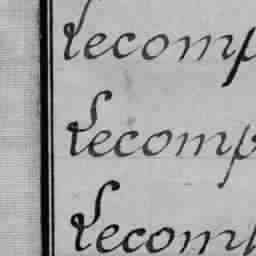 Recomp
Recomp
Recomp